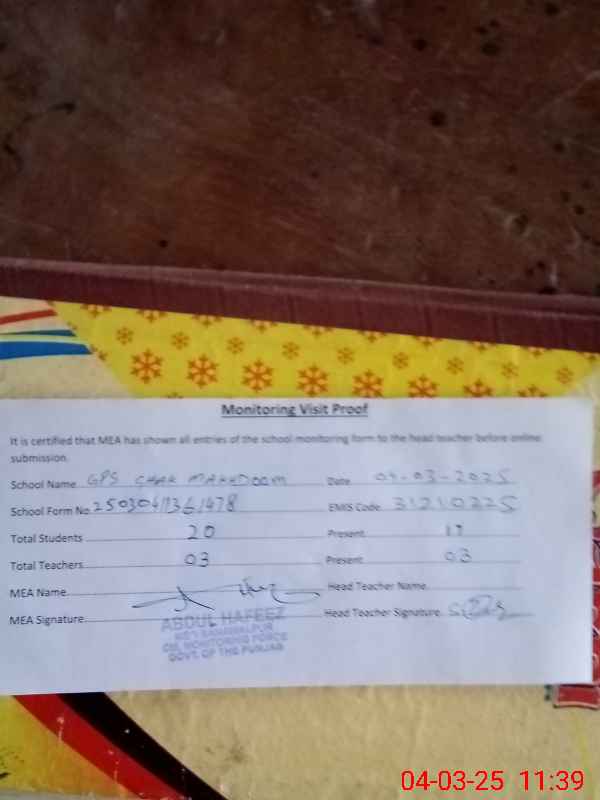 Monitoring Visit Proof
It is certified that MEA has shown all entries of the school monitoring form to the head teacher before online
submission.
School Name GPS CHAK MAKHDOOM Date 04-03-2025
School Form No. EMIS Code 31210225
Total Students 20 Present 17
Total Teachers 03 Present 03
MEA Name Head Teacher Name
MEA Signature Head Teacher Signature
ABDUL HAFEEZ
BAHAWALPUR
CM, MONITORING FORCE
GOVT. OF THE PUNJAB
04-03-25 11:39